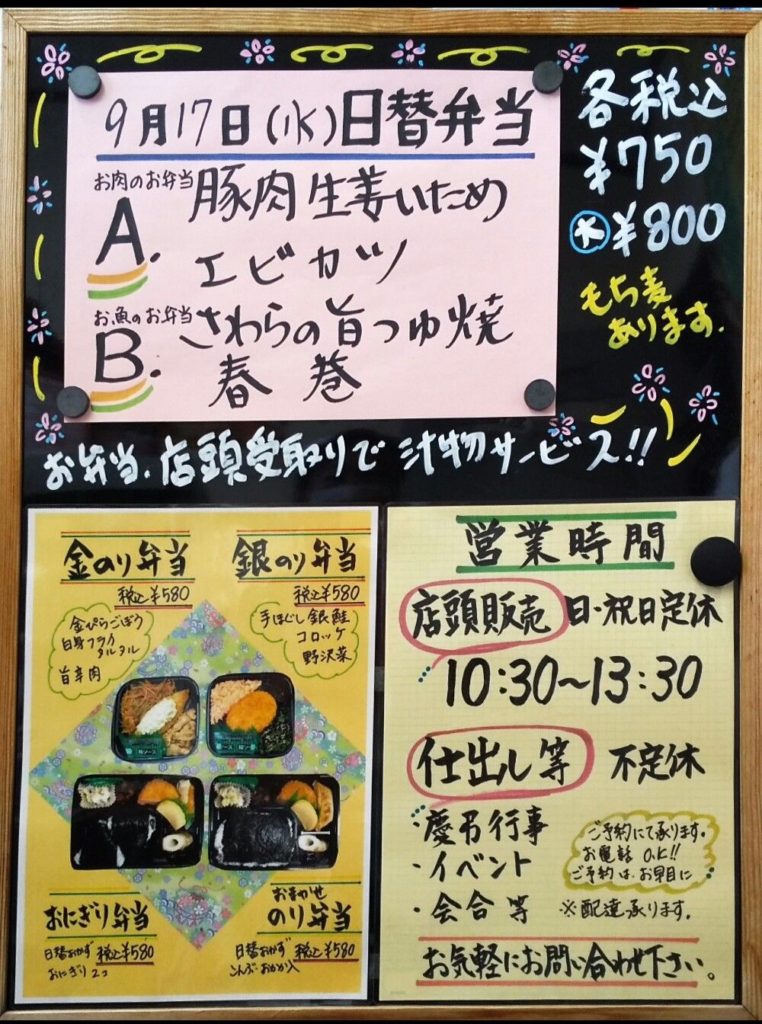 9月17日(水)日替弁当
お肉のお弁当
A.
豚肉生姜いため
エビカツ
お魚のお弁当
B.
さわらの旨つゆ焼
春巻
各税込
¥750
大 ¥800
もち麦
あります.
お弁当、店頭受取りで汁物サービス!!
金のり弁当
税込¥580
金ぴらごぼう
白身フライ
タルタル
旨辛肉
銀のり弁当
税込¥580
手ほぐし銀鮭
コロッケ
野沢菜
おにぎり弁当
日替おかず
おにぎり2つ
税込¥580
おまかせ
のり弁当
日替おかず
こんぶ・おかか入
税込¥580
営業時間
店頭販売 日・祝日定休
10:30~13:30
仕出し等 不定休
・慶弔行事
・イベント
・会合等
ご予約にて承ります。
お電話 O.K!!
ご予約は、お早目に
※配達承ります。
お気軽にお問い合わせ下さい。